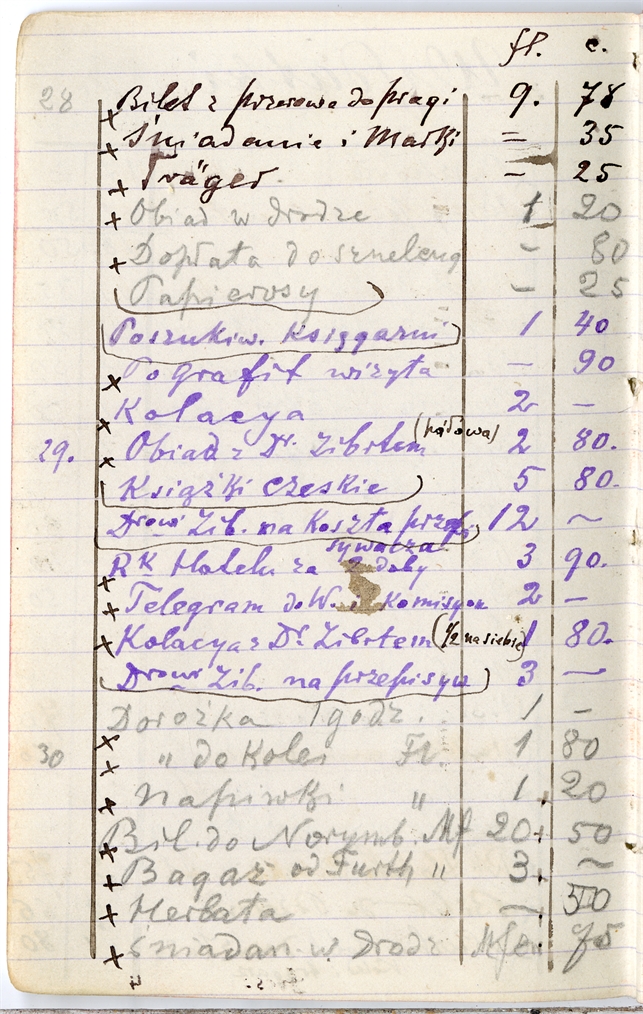 fl. c.
28 Bilet z przerowa do pragi 9. 78
x Śniadanie i Marki = 35
x Träger - 25
x Obiad w drodze 1 20
x Dopłata do sznelcug - 80
Papierosy - 25
Poszukiw. Księgarni 1 40
x Po grafit wizyta - 90
x Kolacya 2 -
29. x Obiad z Dr. Zibrtem (połowa) 2 80.
Książki czeskie 5 80.
Drowi Zib. na koszta przep. 12 ~
sywacza
x RK Hotelu za 2 doby 3 90.
x Telegram do W. i Komisyon 2 -
x Kolacya z Dr. Zibrtem (1/2 na siebie) 1 80.
Drowi Zib. na przepisyw 3 —
x Dorożka 1 godz. 1 -
30 x " do Kolei Fr. 1 80
x Napiwki " 1. 20
x Bil. do Norymb. Mf 20. 50
x Bagaż od Furth " 3. ~
x Herbata — 50
x Śniadan w drodz 75